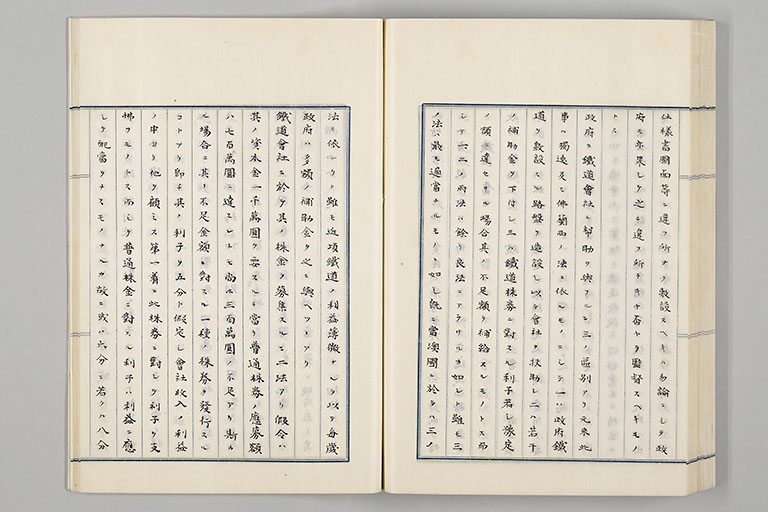 仕樣書圖面等ニ違フ所ナク敷設スヘキハ勿論ニシテ政
府モ亦果シテ之ニ違フ所ナキヤ否ヤヲ監督スヘキモノ
トス
政府ノ鐵道會社ニ幇助ヲ與フルニ三ノ區別アリ元來此
事ハ獨逸及ヒ佛蘭西ノ法ニ依ルモノニシテ一ハ政府鐵
道ヲ敷設スル路盤ヲ造設シ以テ會社ヲ扶助シ二ハ若干
ノ補助金ヲ下付シ三ハ鐵道株券ニ對スル利子若シ豫定
ノ額ニ達セサル場合其ノ不足額ヲ補給スルモノトス而
シテ一二ノ兩法ハ餘リ良法ニアラサルカ如シト雖モ三
ノ法ハ最モ適當ナルモノヽ如シ既ニ當澳國ニ於テハ三ノ
法ニ依レリト雖モ近頃鐵道ノ利益薄微ナルヲ以テ每歲
政府ハ多額ノ補助金ヲ之ニ與ヘツヽアリ
鐵道會社ニ於テ其ノ株金ヲ募集スルニ二法アリ假令ハ
其ノ資本金一千萬圓ヲ要スルニ當リ普通株券ノ應募額
ハ七百萬圓ニ達スレトモ尚ホ三百萬圓ノ不足アリ斯カ
ル場合ニ其ノ不足金額ニ對スル一種ノ株券ヲ發行スル
コトアリ即チ其ノ利子ヲ五分ト假定シ會社收入ノ利益
ノ中ヨリ他ヲ顧ミス第一着ニ此株券ニ對シテ利子ヲ支
拂フモノトス而シテ普通株金ニ對スル利子ハ利益ニ應
シテ配當ヲナスモノナルカ故ニ或ハ六分ニ若クハ八分